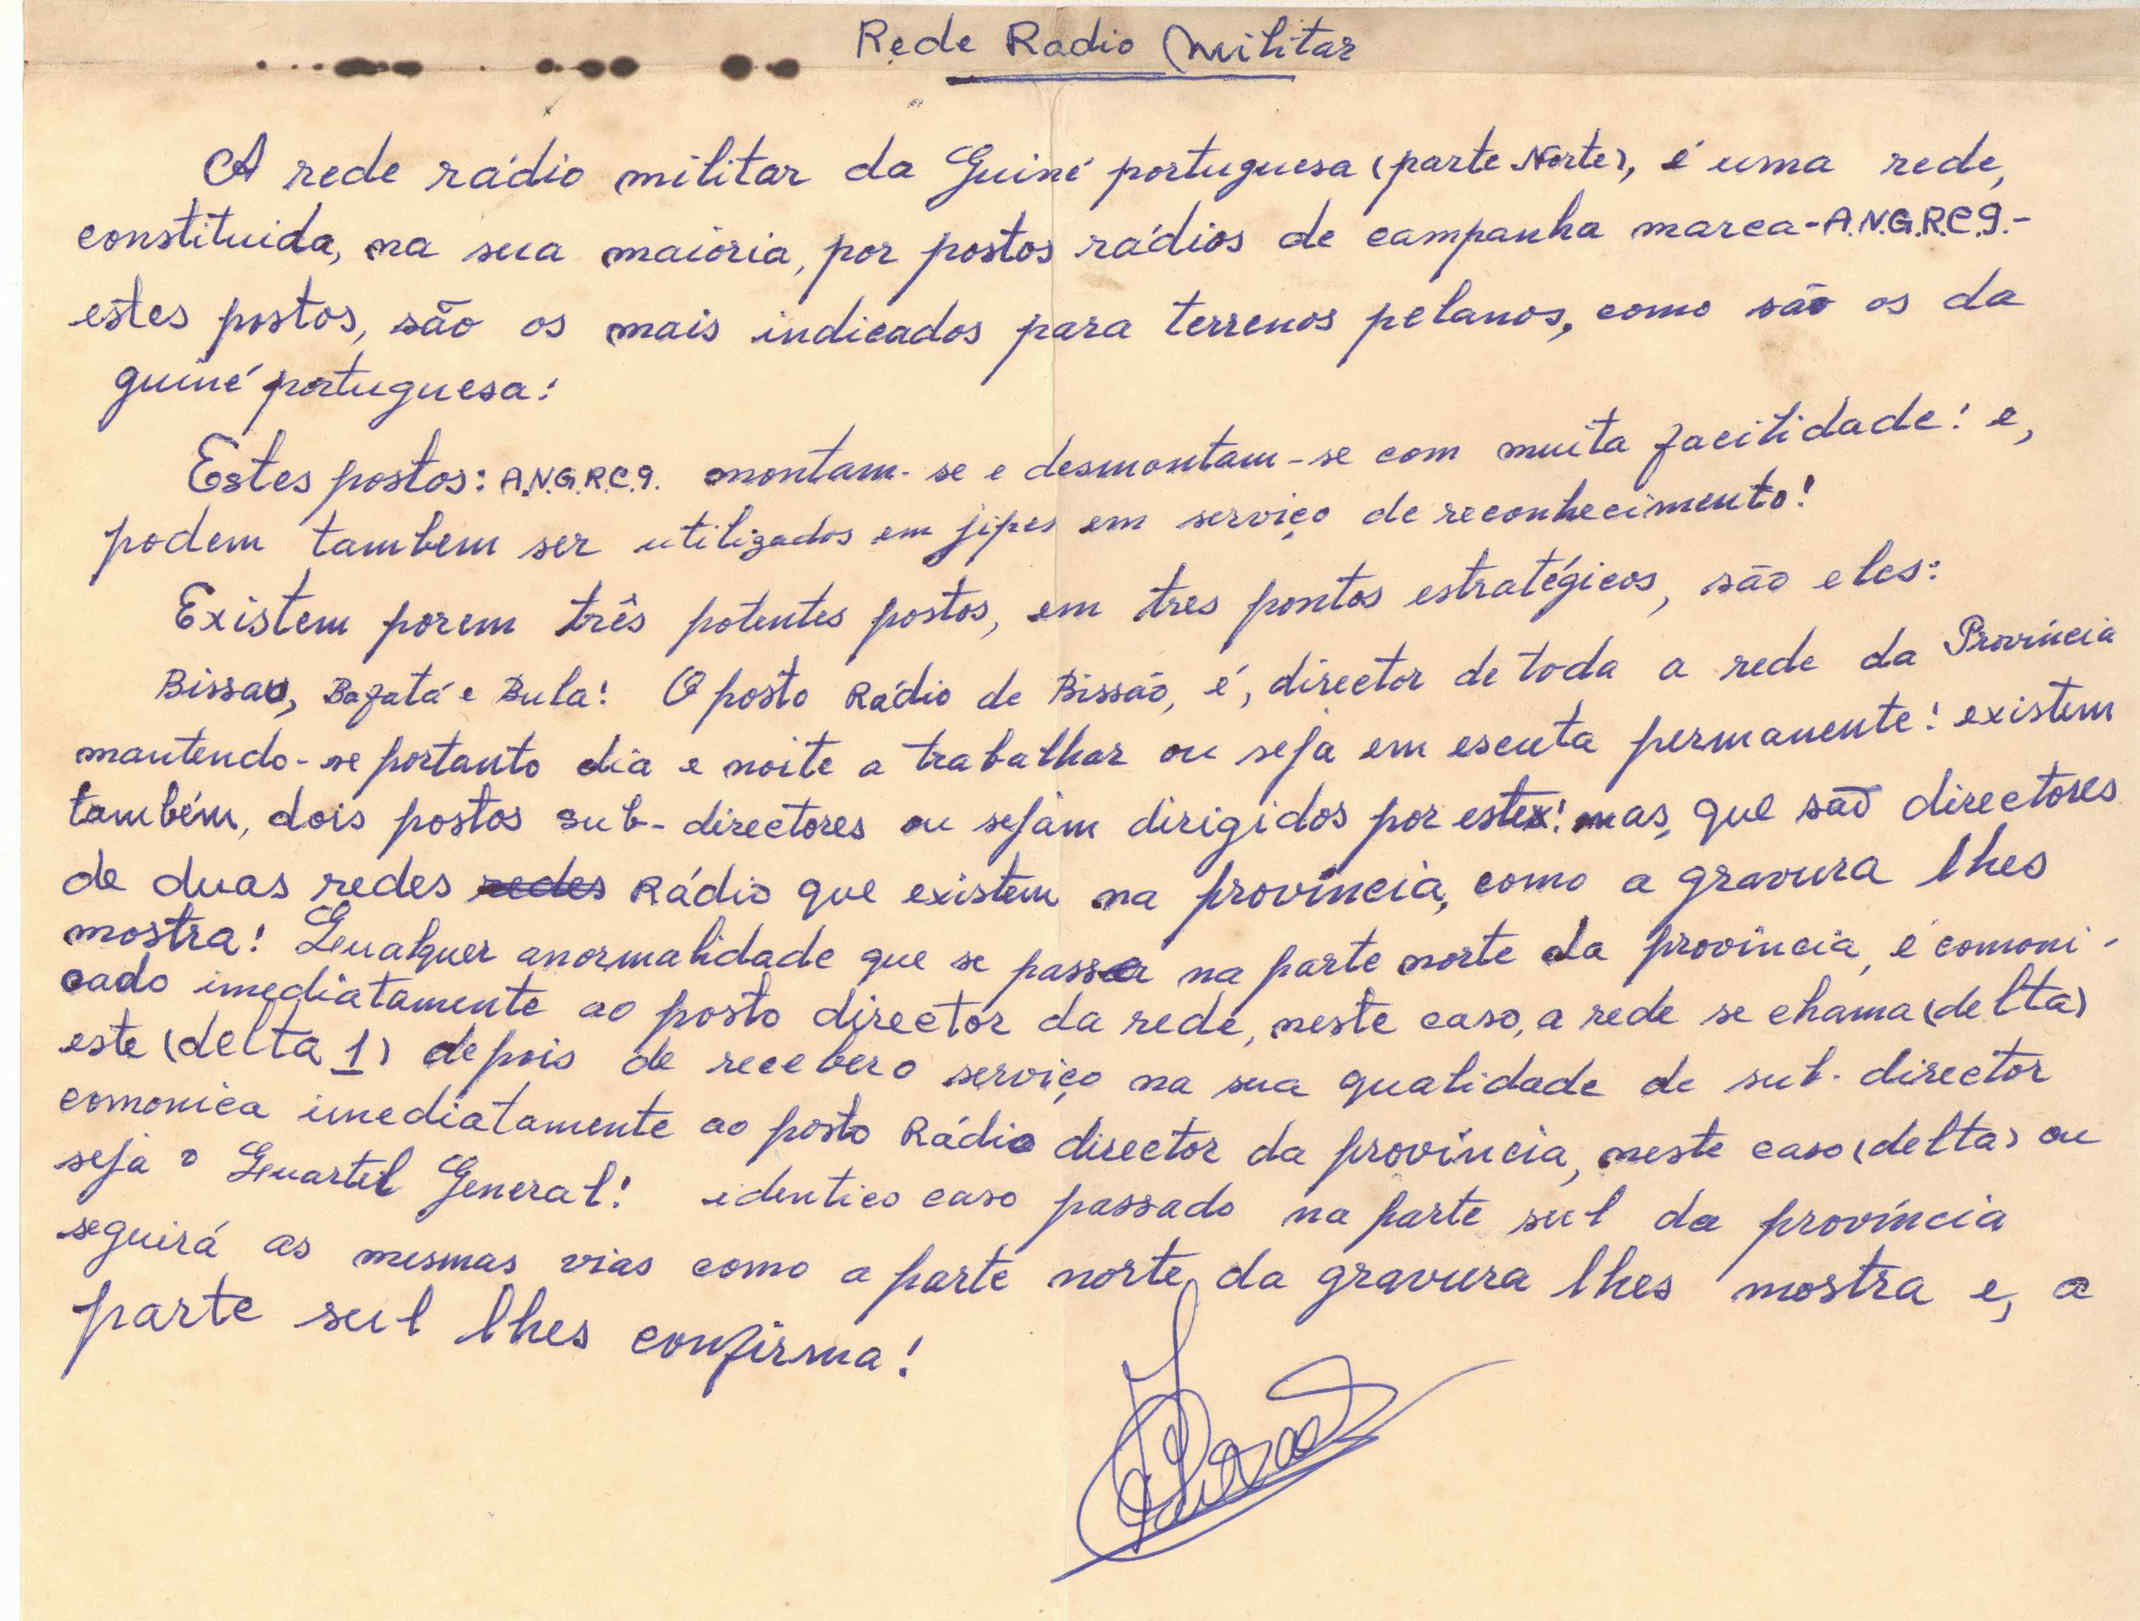 Rede Radio Militar
A rede rádio militar da Guiné portuguesa (parte Norte), é uma rede,
constituida, na sua maioria, por postos rádios de campanha marca-A.N.G.R.C.9.-
estes postos, são os mais indicados para terrenos pelanos, como são os da
guiné portuguesa!
Estes postos: A.N.G.R.C.9. montam-se e desmontam-se com muita facilidade! e,
podem tambem ser utilizados em jipes em serviço de reconhecimento!
Existem porem três potentes postos, em tres pontos estratégicos, são eles:
Bissau, Bafatá e Bula! O posto Rádio de Bissão, é, director de toda a rede da Província
mantendo-se portanto dia e noite a trabalhar ou seja em escuta permanente! existem
também, dois postos sub-directores ou sejam dirigidos por este! mas, que são directores
de duas redes redes Rádio que existem na província, como a gravura lhes
mostra! Qualquer anormalidade que se passe na parte norte da província, é comoni-
cado imediatamente ao posto director da rede, neste caso, a rede se chama (delta)
este (delta 1) depois de receber o serviço na sua qualidade de sub-director
comonica imediatamente ao posto Rádio director da província, neste caso (delta) ou
seja o Quartel General! identico caso passado na parte sul da província
seguirá as mesmas vias como a parte norte, da gravura lhes mostra e, a
parte sul lhes confirma!